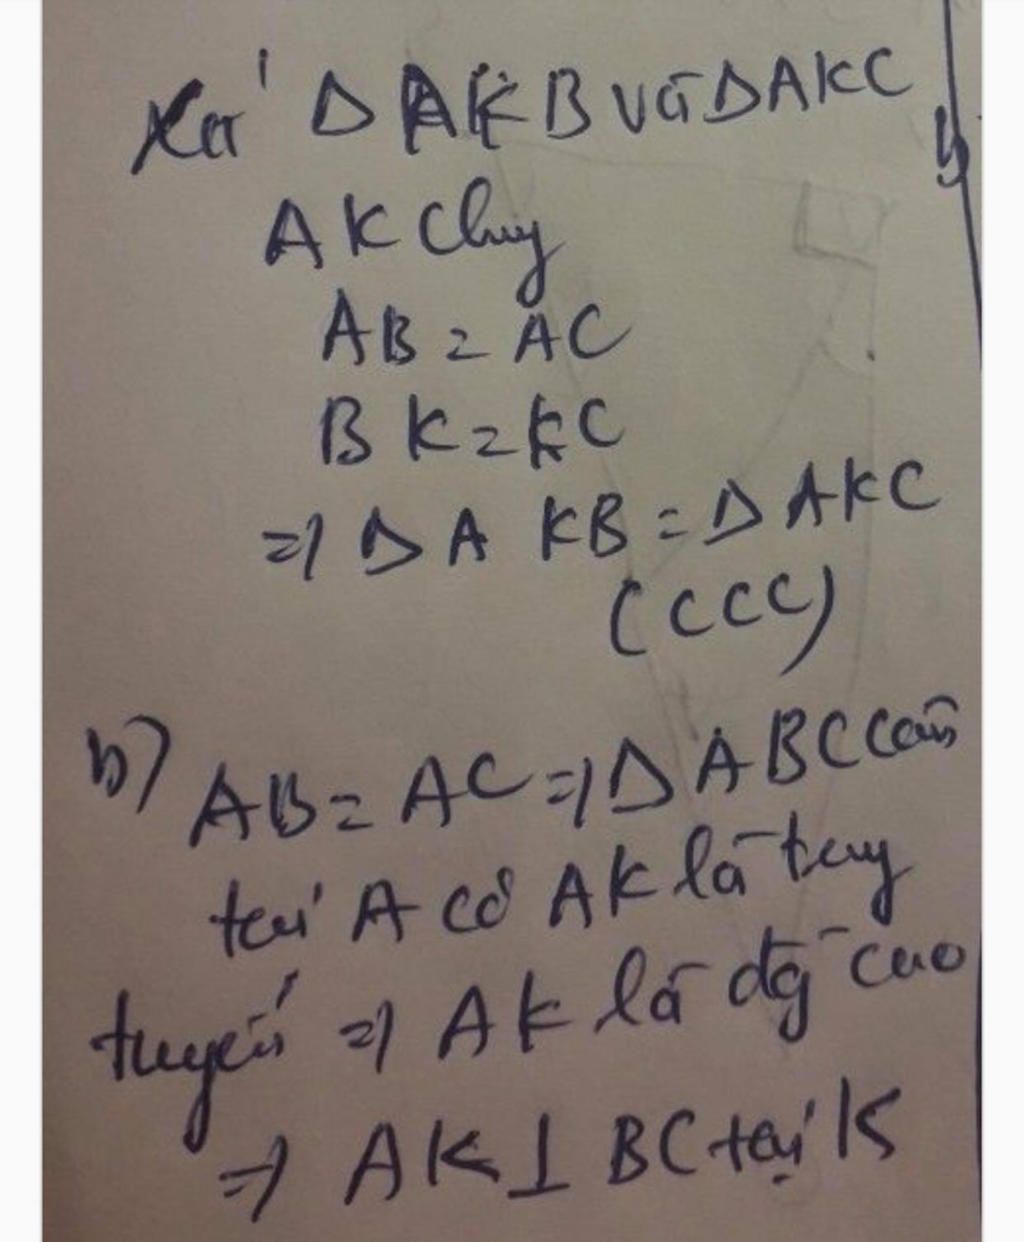 Xét Δ AKB và Δ AKC
AK chug
AB = AC
BK = KC
=> Δ AKB = Δ AKC
(CCC)
b) AB = AC => Δ ABC cân
tại A có AK là trug
tuyến => AK là đg cao
=> AK ⊥ BC tại K